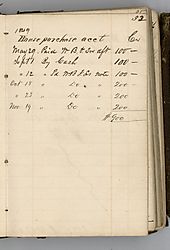 32
1849
House purchase acct. Cr
May 29 Paid W. B. & Son dft 100 —
Sept 1 By Cash 100 —
" 12 " Pd W. B. & Son note 100 —
Oct 18 " Do " 200 —
" 23 " Do " 200 —
Nov 19 " Do " 200 —
$ 900